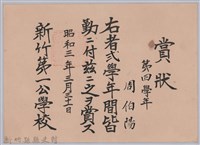 賞狀
第四學年
周伯陽
右者弐學年間皆
勤ニ付茲ニ之ヲ賞ス
昭和三年三月二十日
新竹第一公學校